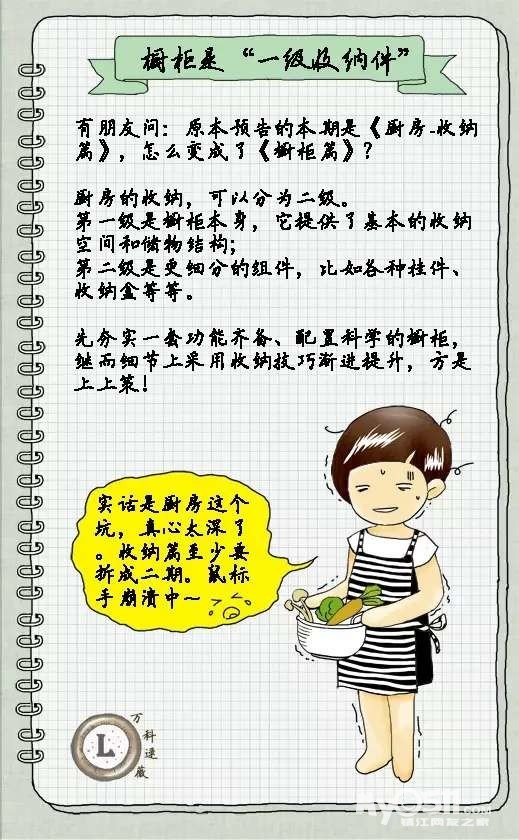 橱柜是“一级收纳件”
有朋友问：原本预告的本期是《厨房-收纳
篇》，怎么变成了《橱柜篇》？
厨房的收纳，可以分为二级。
第一级是橱柜本身，它提供了基本的收纳
空间和储物结构；
第二级是更细分的组件，比如各种挂件、
收纳盒等等。
先夯实一套功能齐备、配置科学的橱柜，
继而细节上采用收纳技巧渐进提升，方是
上上策！
实话是厨房这个
坑，真心太深了
。收纳篇至少要
拆成二期。鼠标
手崩溃中～
万科逮薇
L